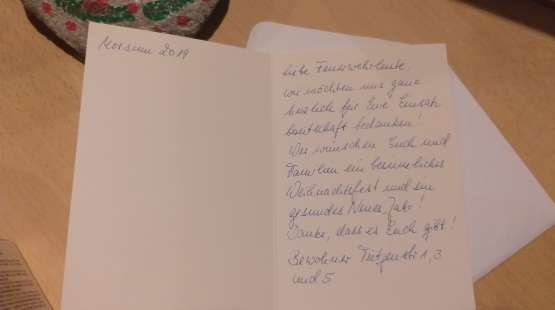 Morsum 2019
Liebe Feuerwehrleute,
wir möchten uns ganz
herzlich für Eure Einsatz
bereitschaft bedanken!
Wir wünschen Euch und
Familien ein besinnliches
Weihnachtsfest und ein
gesundes Neues Jahr!
Danke, dass es Euch gibt!
Bewohner 1, 3
und 5